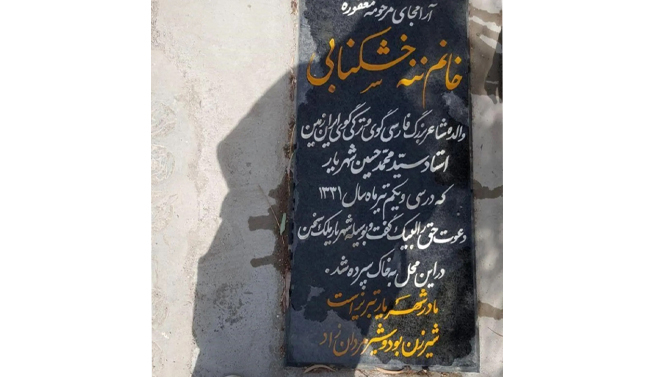 آرامجای مرحومه مغفوره
خانم ننه خشکنابی
والده شاعر بزرگ فارسی گوی و ترکی گوی ایران زمین
استاد سید محمد حسین شهریار
که در سی و یکم تیر ماه سال ۱۳۳۱
دعوت حق را لبیک گفت و بوسیله شهریار ملک سخن
در این محل به خاک سپرده شد.
مادر شهریار تبریز است
شیرزن بود و شیر مردان زاد